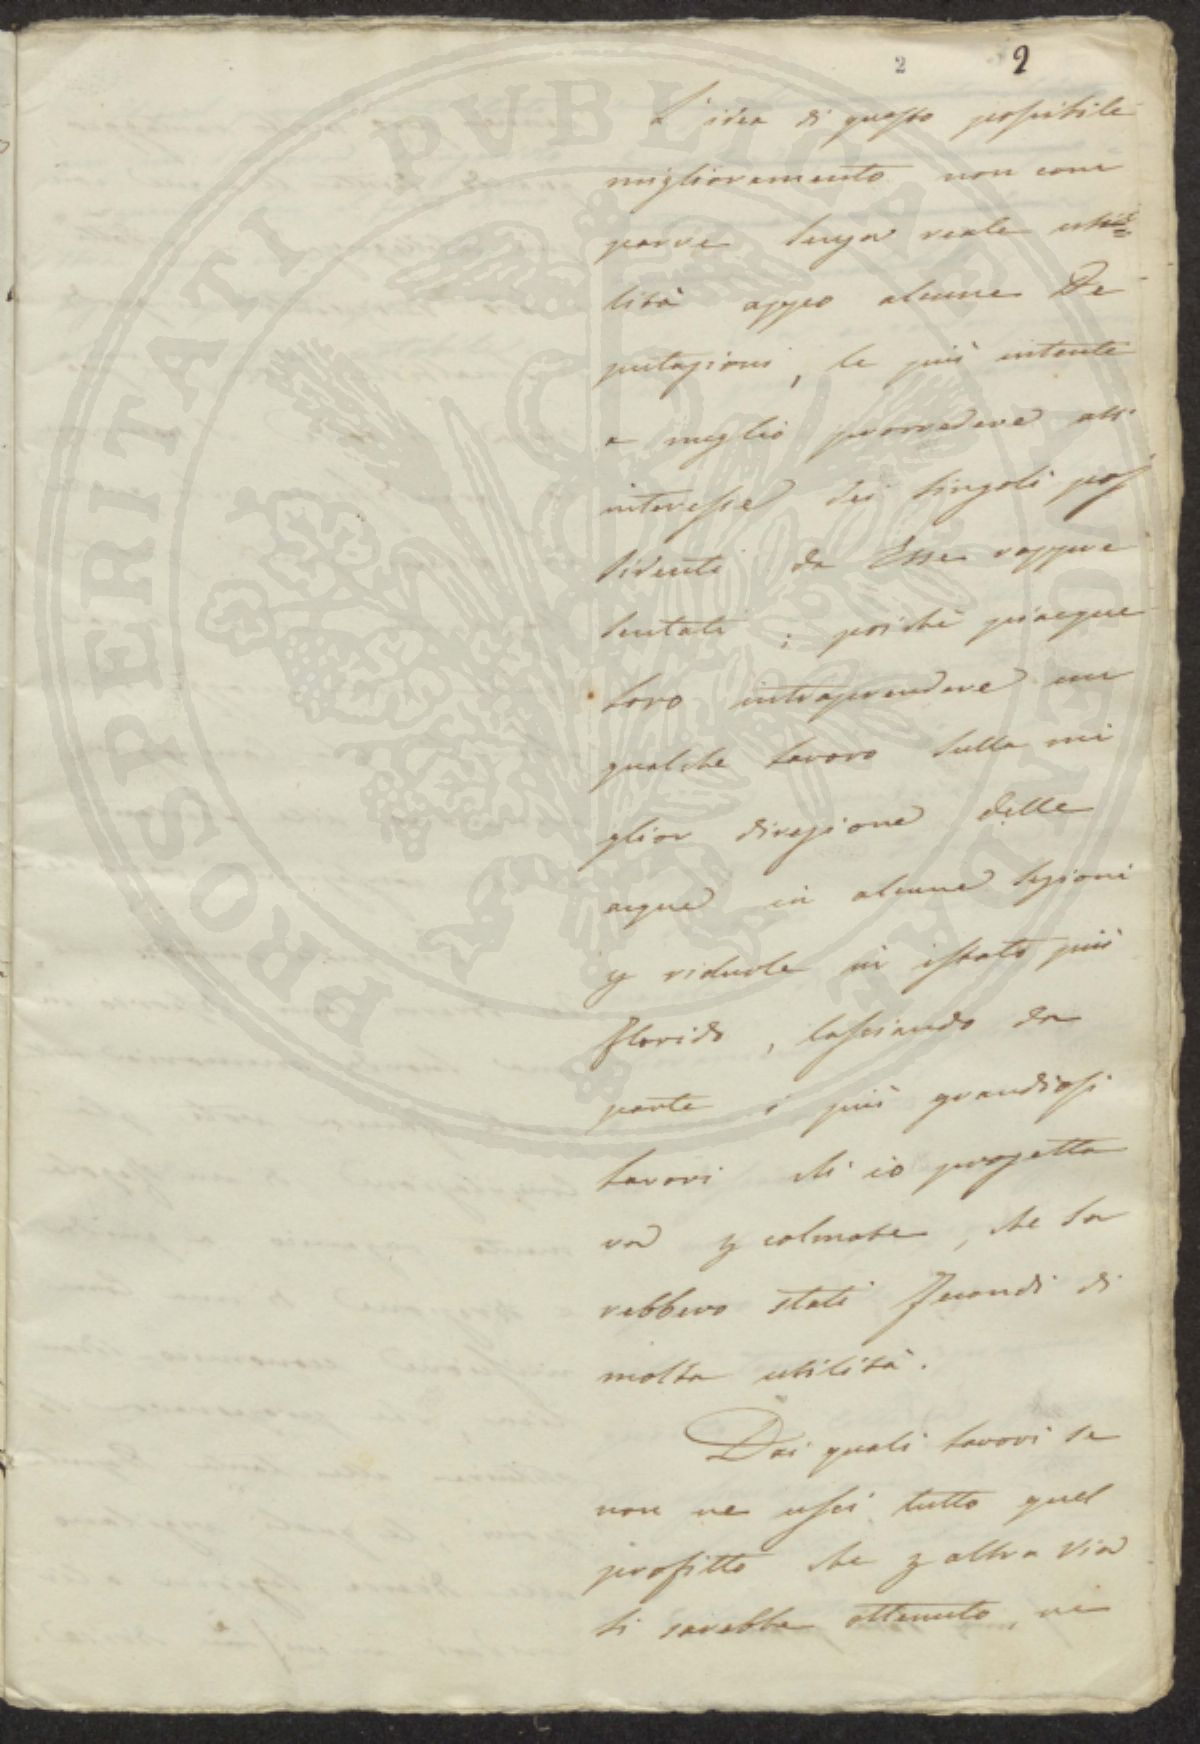 2 2
L'idea di questo possibile
miglioramento non com
parve senza reale uti
lità appo alcune De
putazioni, le più intente
a meglio provvedere all'
interesse dei singoli pos
sidenti da Esse rappre
sentati; poichè piacque
loro intraprendere un
qualche lavoro sulla mi
glior direzione delle
acque in alcune sezioni
p ridurle in istato più
florido, lasciando da
parte i più grandiosi
lavori ch'io progetta
va p colmate, che sa
rebbero stati fecondi di
molta utilità.
Dai quali lavori se
non ne uscì tutto quel
profitto che p altra via
si sarebbe ottenuto, ne
PROSPERITATI PVBLICAE AVGENDAE